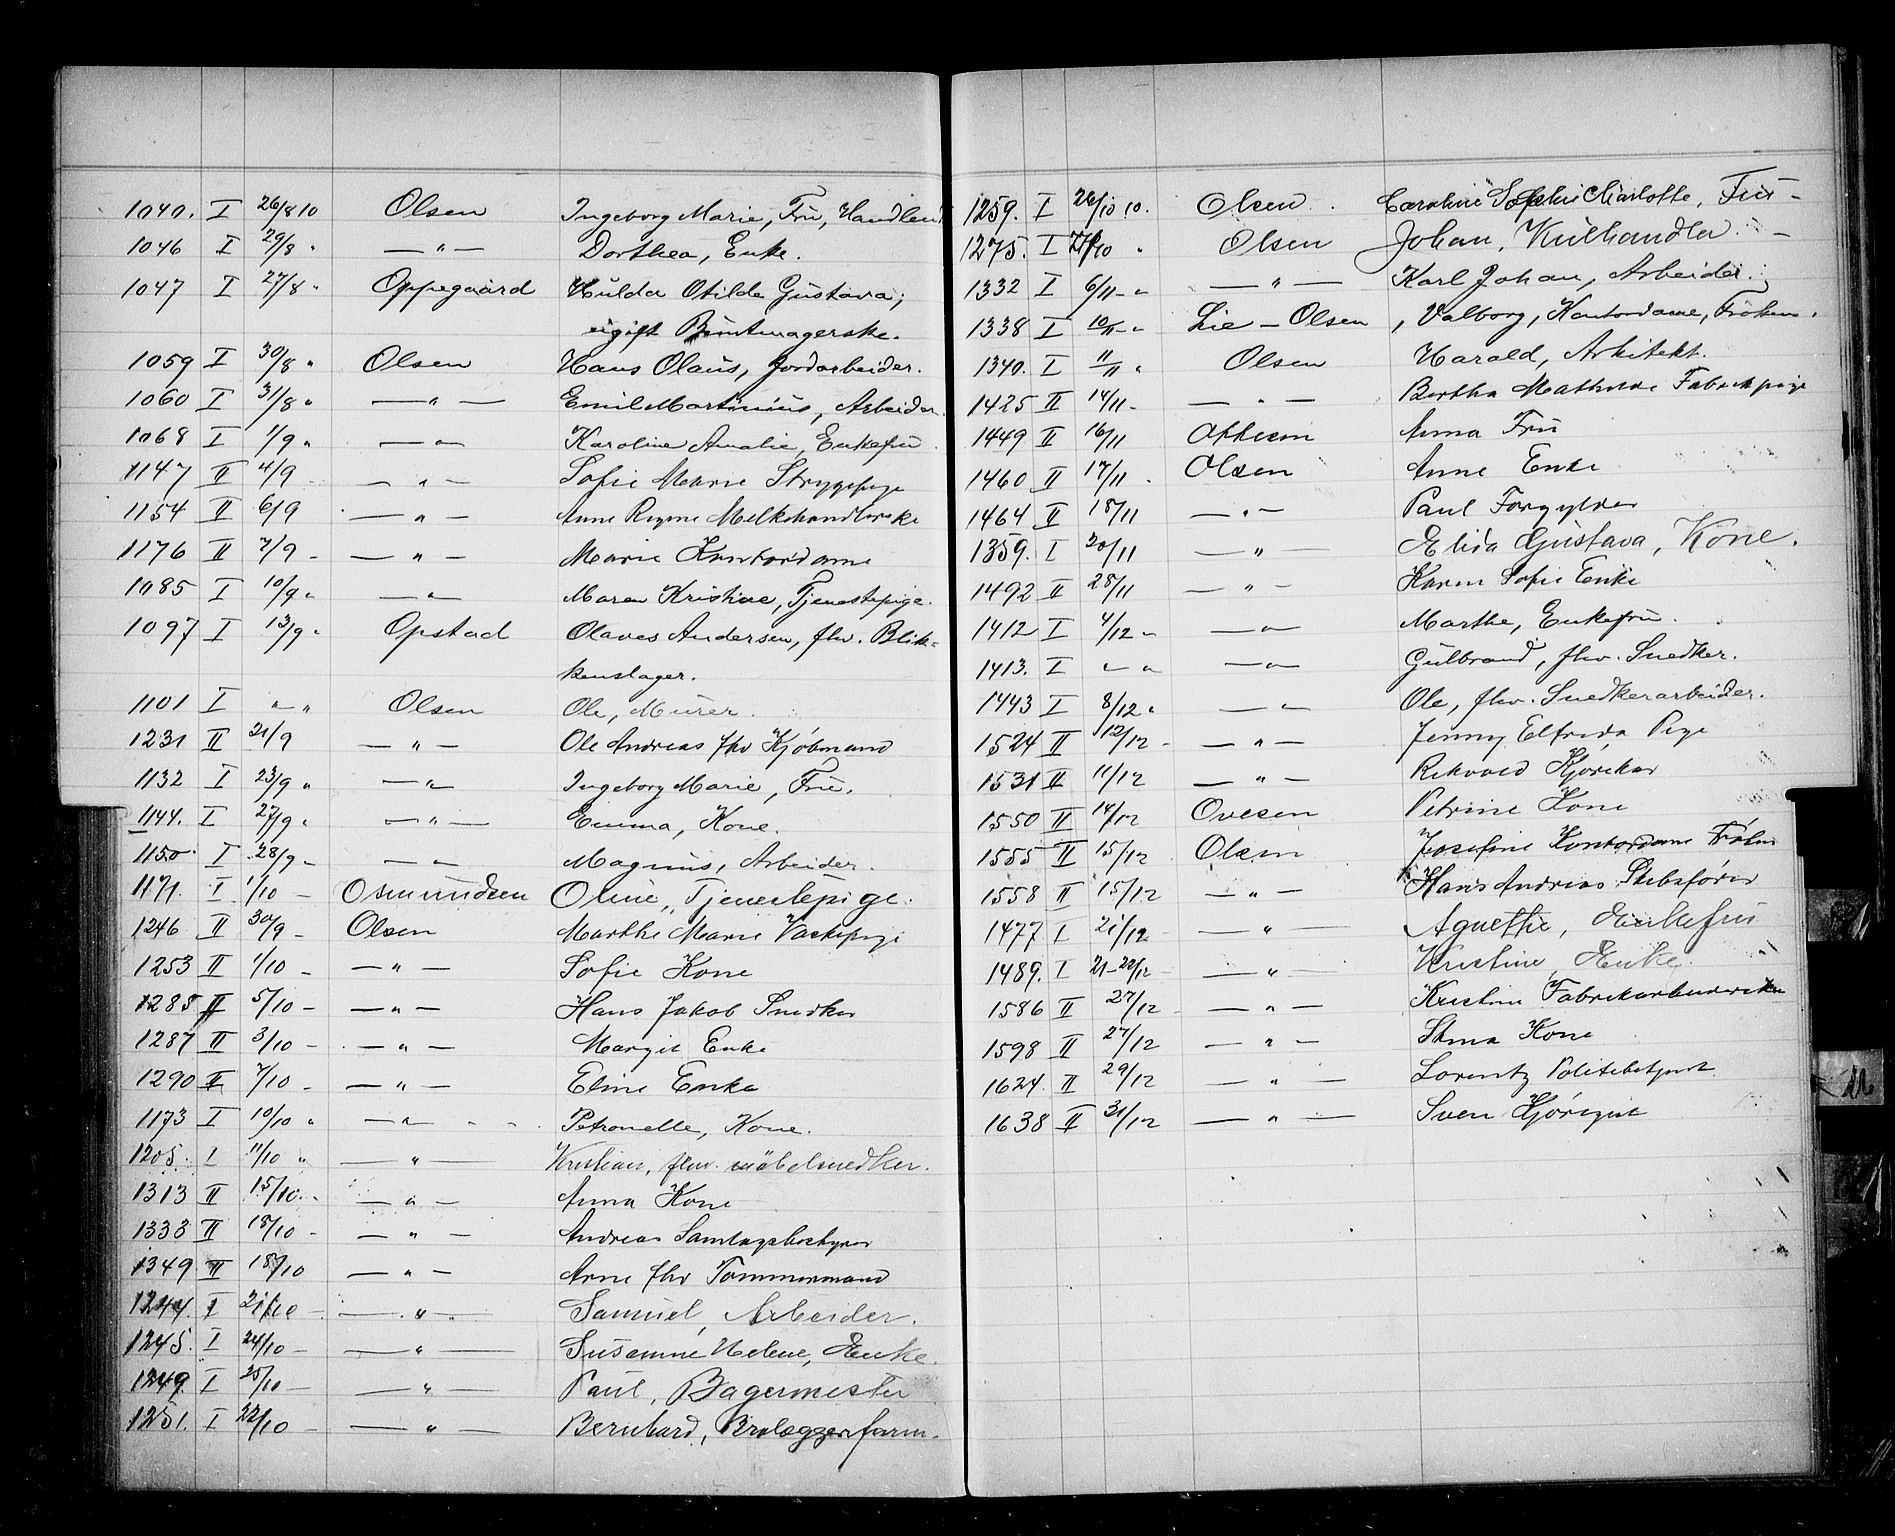 1040. I 26/8 10 Olsen Ingeborg Marie, Frü, Handlen
1046 I 29/8 " — " — Dorthea, Enke.
1047 I 27/8 " Oppegaard Hulda Otilde Güstava,
ügift Büntmagerske.
1059 I 30/8 " Olsen Hans Olaüs, Jordarbeider.
1060 I 31/8 " — " — Emil Martinius, Arbeider.
1068 I 1/9 " — " — Karoline Amalie, Enkefrü
1147 II 4/9 — " — Sofie Marie Strygepige
1154 II 6/9 — " — Anne Regine Melkehandlerske
1176 II 7/9 — — " — Marie Kontordame
1085 I 10/9 " — " — Maren Kristine, Tjenestepige.
1097 I 13/9 " Opstad Olaves Andersen, fhv. Blik=
kenslager.
1101 I " " Olsen Ole, Mürer.
1231 II 21/9 — " — Ole Andreas fhv Kjøbmand
1132 I 23/9 " — " — Ingeborg Marie, Frü.
1144. I 27/9 " — " — Emma, Kone.
1150 I 28/9 — — " — Magnus, Arbeider.
1171. I 1/10 — Osmundsen Oline, Tjenestepige.
1246 II 30/9 — Olsen Marthe Marie Vaskepige
1253 II 1/10 — — " — Sofie Kone
1285 II 5/10 — — " — Hans Jakob Snedker
1287 II 3/10 — — " — Margit Enke
1290 II 7/10 — — " — Eline Enke
1173 I 10/10 " — " — Petronelle, Kone.
1205. I 11/10 " — " — Kristian, fhv. møbelsnedker.
1313 II 15/10 — " — Anna Kone
1333 II 18/10 — — " — Andreas
1349 II 18/10 — " — Arne fhv Tømmermand
1244. I 21/10 — — " — Samuel, Arbeider.
1245. I 24/10 — — " — Susanne Helene, Enke.
1249. I 25/10 — — " — Paul, Bagermester
1251. I 22/10 — — " — Bernhard, Brolæggerform.
1259. I 26/10 10. Olsen. Caroline Sophie Charlotte, Früe —
1275. I 27/10 " Olsen Johan, Külhandler. —
1332 I 6/11 — " — " — Karl Johan, Arbeider.
1338 I 10/11 — " Lie — Olsen , Valborg, Kontordame, Frøken.
1340. I 11/11 " Olsen Harald, Arkitekt.
1425 II 14/11 — — " — Bertha Mathilde Fabrikpige
1449 II 16/11 Ottesen Anna Frü
1460 II 17/11 Olsen Anne Enke
1464 II 18/11 — " — Paul Forgylder
1359. I 20/11 — " — Elida Güstava, Kone.
1492 II 28/11 — " — Karen Sofie Enke
1412 I 4/12 " — " — Marthe, Enkefrü.
1413. I " " — " — Gülbrand, fhv. Snedker.
1443 I 8/12 " — " — Ole, fhv. Snedkerarbeider.
1524 II 12/12 — — " — Jenny Elfrida Pige
1531 II 11/12 — " — Rikvald Kjøreker
1550 II 14/12 Ovesen Petrine Kone
1555 II 15/12 Olsen Josefine Kontordame Frøken
1558 II 15/12 — " — Hans Andreas Skibsfører
1477 I 21/12 — " — Agnethe, Enkefrü
1489. I 21-22/12 — — " — Kristine, Enke.
1586 II 27/12 — — " — Kristine Fabrikarbeiderske
1598 II 27/12 — " — Stina Kone
1624. II 29/12 — " — Lorentz Politibetjent
1638 II 31/12 — " — Sven Kjøregut